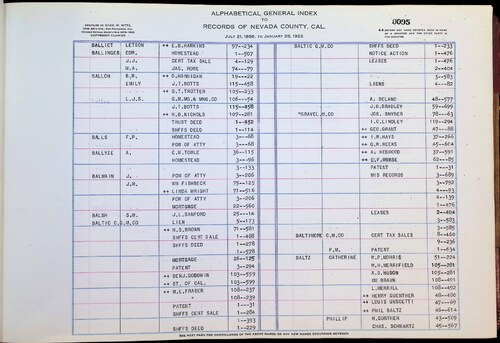 ALPHABETICAL GENERAL INDEX
TO
RECORDS OF NEVADA COUNTY, CAL.
JULY 21, 1856, TO JANUARY 26, 1922
0095
COPYRIGHT CLAIMED
BALLIET LETSON ++ L.B.HAWKINS 97--234
BALLINGER EDW. SHFFS DEED 2--507
J.J. CERT TAX SALE 4--129
W.A. JAS. ROPE 74--79
BALLON B.W. ++ D.HARRIGAN 19--22
EMILY J.T.BOTTS 115--458
++ S.T.TROTTER 115--235
L.J.S. G.M.MG.& MNG.CO 106--54
J.T.BOTTS 115--458
++ H.D.NICHOLS 109--281
TRUST DEED 1--452
SHFFS DEED 1--114
BALLS F.P. HOMESTEAD 3--68
POW OF ATTY 3--68
BALLYEE A. C.W.TOWLE 36--115
HOMESTEAD 3--96
3--133
BALMAIN J. POW OF ATTY 3--206
J.M. WM FISHBECK 75--125
++ LINDA WRIGHT 71--516
POW OF ATTY 3--206
MORTGAGE 22--560
BALSH S.M. J.L.SANFORD 25--14
BALTIC C.G.M.CO LIEN 5--173
++ W.S.BROWN 71--581
SHFFS CERT SALE 1--488
SHFFS DEED 1--278
1--528
MORTGAGE 26--125
PATENT 3--294
++ BENJ.GODWIN 103--599
++ ST. OF CAL. 103--599
++ M.E.FRASER 108--237
" 108--238
PATENT 1--31
SHFFS CERT SALE 1--284
1--353
SHFFS DEED 1--229
BALTIC G.M.CO SHFFS DEED 1--233
NOTICE ACTION 1--476
LEASES 2--404
2--476
3--583
LIENS 4--82
A. DELAND 48--577
J.D.BRADLEY 59--699
"GRAVEL.M.CO JOS. SNYDER 78--63
I.C.LINDLEY 119--294
++ GEO.GRANT 47--88
++ T.M.HAYS 37--266
++ G.W.MEEKS 45--604
++ A. HEYWOOD 37--591
++ E.F.MORSE 62--85
PATENT 1--31
MIS RECORDS 3--689
3--792
4--93
4--139
1--476
LEASES 2--404
3--583
3--585
BALTIMORE G.M.CO CERT TAX SALES 8--460
9--236
P.M. PATENT 1--634
BALTZ CATHERINE M.P.MORRIS 51--224
W.H.MERRIFIELD 105--281
A.D.MUDON 105--281
WM BRAUN 108--491
L.MERRILL 108--492
++ HENRY GUENTHER 48--406
++ LOUIS USSCUTTI 67--69
++ PHIL BALTZ 46--614
PHILLIP H.GUNTHER 43--509
CHAS. SCHWARTZ 45--567